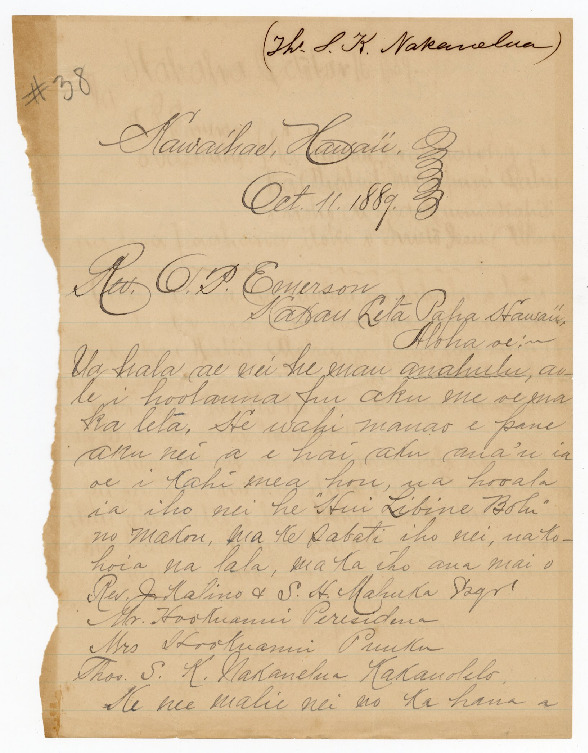 (Th. S. K. Nakanelua)
#38
Kawaihae, Hawaii.
Oct. 11. 1889.
Rev. O. P. Emerson
Kakau Leta Papa Hawaii.
Aloha oe:~
Ua hala ae nei he mau anahulu, ao-
le i hoolauna pu aku me oe ma
ka leta. He wahi manao e pane
aku nei a e hai aku ana'u ia
oe i kahi mea hou, ua hooala
ia iho nei he "Hui Libine Bolu"
no makou, ma ke Sabati iho nei, ua ko-
hoia na lala, maka iho ana mai o
Rev. J. Kalino & S. H. Mahuka Esqr
Mr. Hookuanui Peresidena
Mrs Hookuanui Puuku
Thos. S. K. Nakanelua Kakauolelo.
Ke nee malie nei no ka hana a